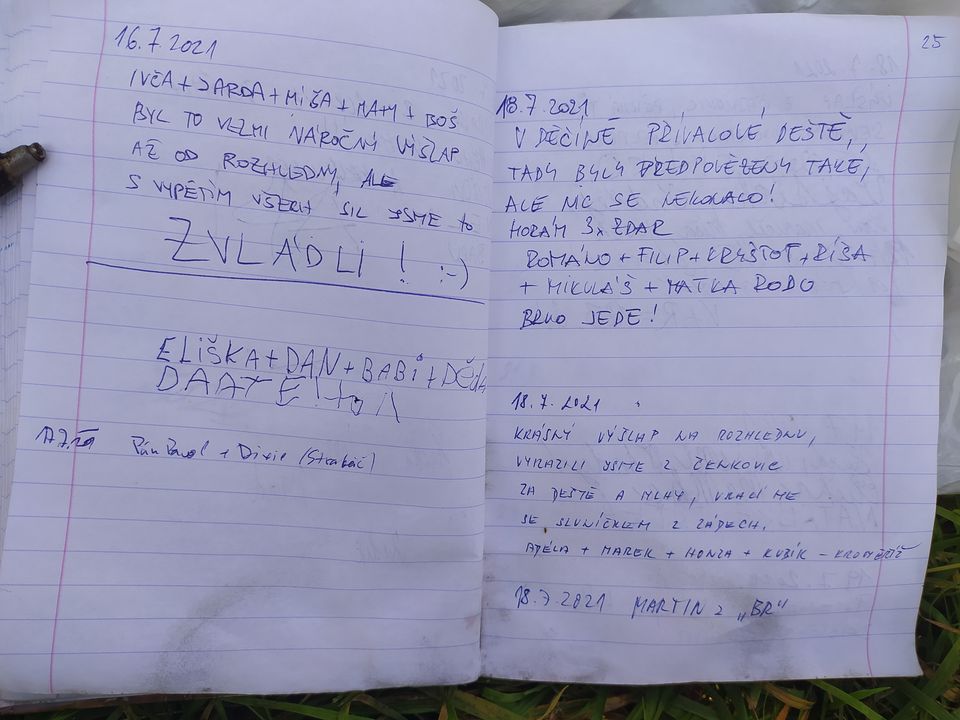 16.7.2021
IVČA + JARDA + MÍŠA + MATY + BOŠ
BYL TO VELMI NÁROČNÝ VÝŠLAP
AŽ OD ROZHLEDNY, ALE
S VYPĚTÍM VŠECH SIL JSME TO
ZVLÁDLI ! :-)
ELIŠKA + DAN + BABI + Děda
17.7.21 Pán Pavol + Dixie (Strakáč)
25
18.7.2021
V DĚČÍNĚ PŘÍVALOVÉ DEŠTĚ,
TADY BYLY PŘEDPOVĚZENY TAKÉ,
ALE NIC SE NEKONALO!
HORÁM 3x ZDAR
ROMÁNO + FILIP + KRYŠTOF + RÍŠA
+ MIKULÁŠ + MATKA RODU
BRNO JEDE!
18.7.2021
KRÁSNÝ VÝŠLAP NA ROZHLEDNU,
VYRAZILI JSME Z ŽENKOVIC
ZA DEŠTĚ A MLHY, VRACÍME
SE SLUNÍČKEM Z ZÁDECH.
ADÉLA + MAREK + HONZA + KUBÍK - KROMĚŘÍŽ
18.7.2021 MARTIN z „BR"